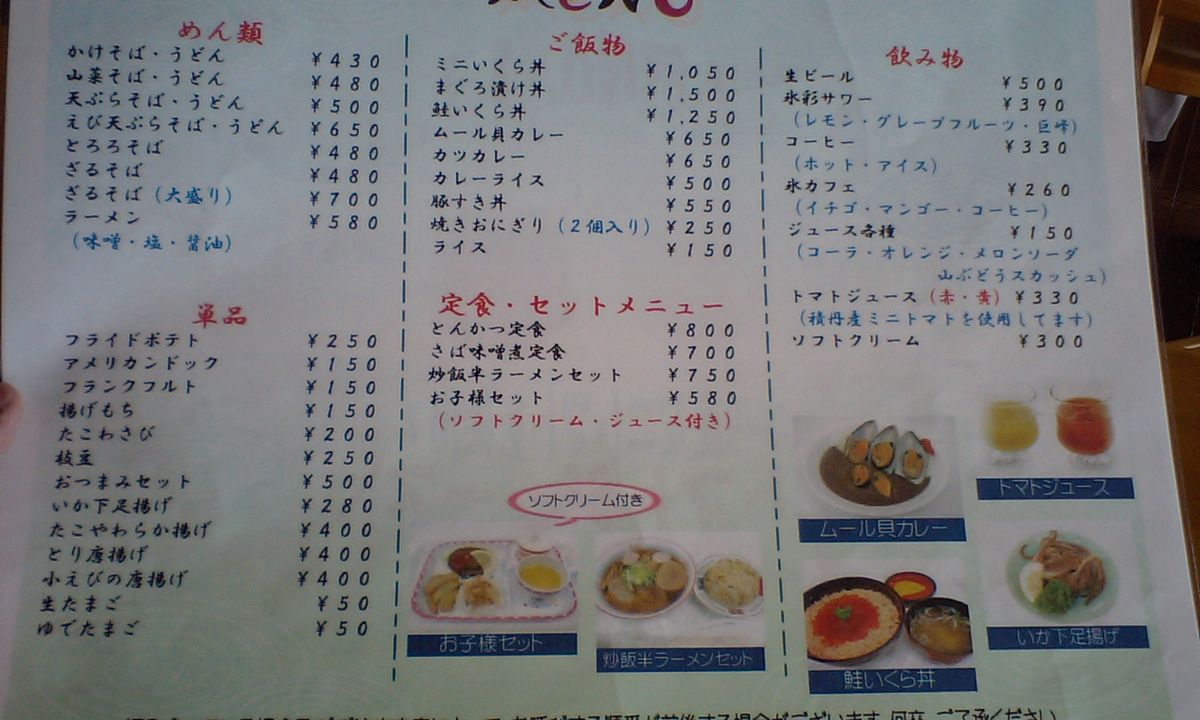 MENU
めん類
かけそば・うどん ¥430
山菜そば・うどん ¥480
天ぷらそば・うどん ¥500
えび天ぷらそば・うどん ¥650
とろろそば ¥480
ざるそば ¥480
ざるそば(大盛り) ¥700
ラーメン ¥580
(味噌・塩・醤油)
単品
フライドポテト ¥250
アメリカンドック ¥150
フランクフルト ¥150
揚げもち ¥150
たこわさび ¥200
枝豆 ¥250
おつまみセット ¥500
いか下足揚げ ¥280
たこやわらか揚げ ¥400
とり唐揚げ ¥400
小えびの唐揚げ ¥400
生たまご ¥50
ゆでたまご ¥50
ご飯物
ミニいくら丼 ¥1,050
まぐろ漬け丼 ¥1,500
鮭いくら丼 ¥1,250
ムール貝カレー ¥650
カツカレー ¥650
カレーライス ¥500
豚すき丼 ¥550
焼きおにぎり(2個入り) ¥250
ライス ¥150
定食・セットメニュー
とんかつ定食 ¥800
さば味噌煮定食 ¥700
炒飯半ラーメンセット ¥750
お子様セット ¥580
(ソフトクリーム・ジュース付き)
ソフトクリーム付き
お子様セット
炒飯半ラーメンセット
飲み物
生ビール ¥500
氷彩サワー ¥390
(レモン・グレープフルーツ・巨峰)
コーヒー ¥330
(ホット・アイス)
氷カフェ ¥260
(イチゴ・マンゴー・コーヒー)
ジュース各種 ¥150
(コーラ・オレンジ・メロンソーダ
山ぶどうスカッシュ)
トマトジュース(赤・黄) ¥330
(積丹産ミニトマトを使用してます)
ソフトクリーム ¥300
ムール貝カレー
トマトジュース
鮭いくら丼
いか下足揚げ
順番が前後する場合がございます。何卒、ご了承ください